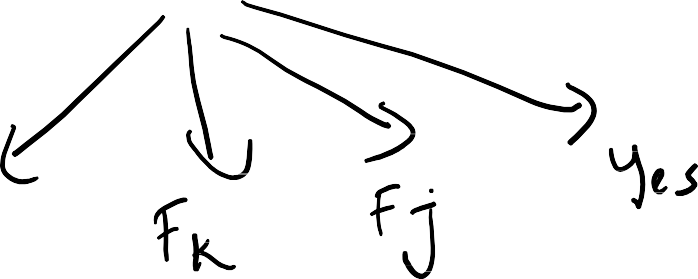 F_k F_j yes